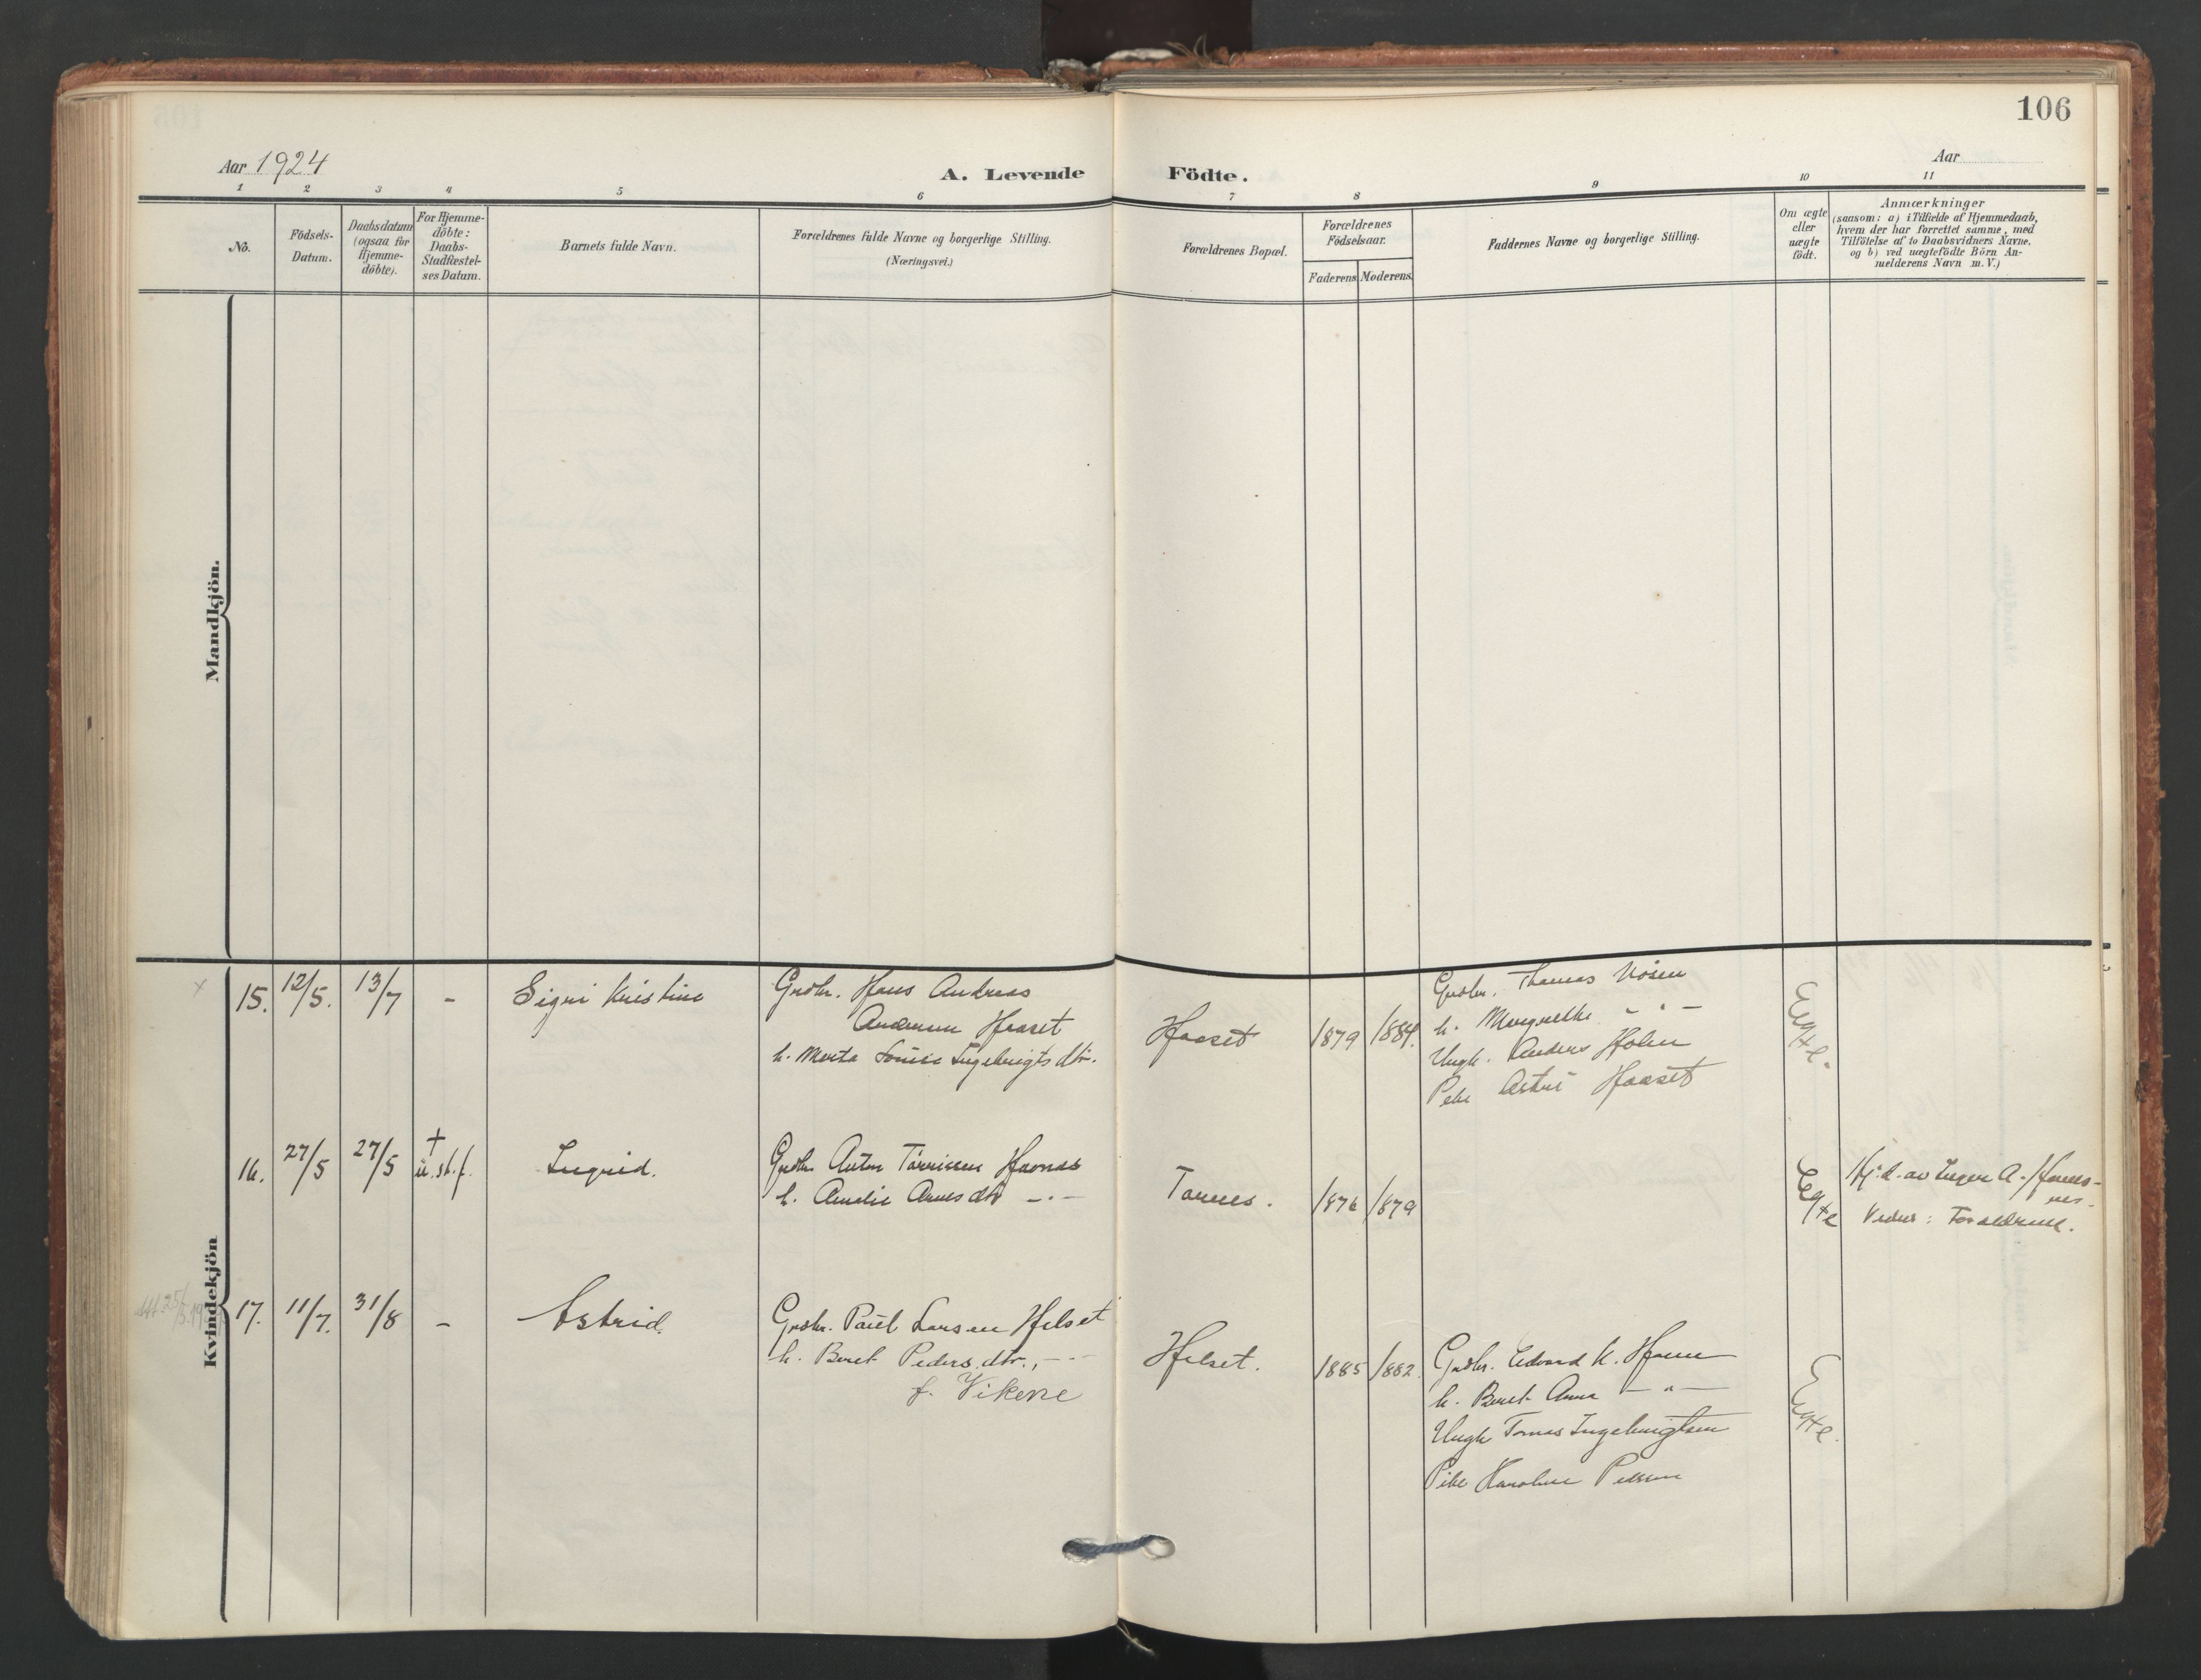 106
Aar 1924
A. Levende Födte.
Aar
1 2 3 4 5 6 7 8 9 10 11
No.
Födsels-
Datum.
Daabsdatum
(ogsaa for
Hjemme-
döbte).
For Hjemme-
döbte:
Daabs-
Stadfæstel-
ses Datum.
Barnets fulde Navn.
Forældrenes fulde Navne og borgerlige Stilling.
(Næringsvei.)
Forældrenes Bopæl.
Forældrenes
Födselsaar.
Faderens Moderens
Faddernes Navne og borgerlige Stilling.
Om ægte
eller
uægte
födt.
Anmærkninger
(saasom: a) i Tilfælde af Hjemmedaab,
hvem der har forrettet samme, med
Tilföielse af to Daabsvidners Navne.
og b) ved uægtefödte Börn An-
melderens Navn m. V.)
Mandkjön.
Kvindekjön
15. 12/5. 13/7 - Sigri Kristine
Grdbr. Hans Andreas
Andersen Haaset
h. Marta Louise Ingebrigts dtr.
Haaset 1879 1884.
Grdbr. Thomas
h. Margrethe - " -
Ungk. Anders Holen
Pike Haaset
Egte.
16. 27/5 27/5 †
u. st. f.
Ingrid.
Grdbr. Anton Hornæs
h. Amalie Arnes dtr - " -
1876 1879
Egte
Hj. d. av Inger A.
Vidner: Forældrene.
17. 11/7. 31/8 - Astrid.
Grdbr. Paul Larsen Helset
h. Beret Peders. dtr., - " -
f. Vikene
Helset. 1885 1882.
Grdbr. Edvard K.
h. Beret Anna - " -
Ungk Tomas Ingebrigtsen
Pike Karoline
Egte.